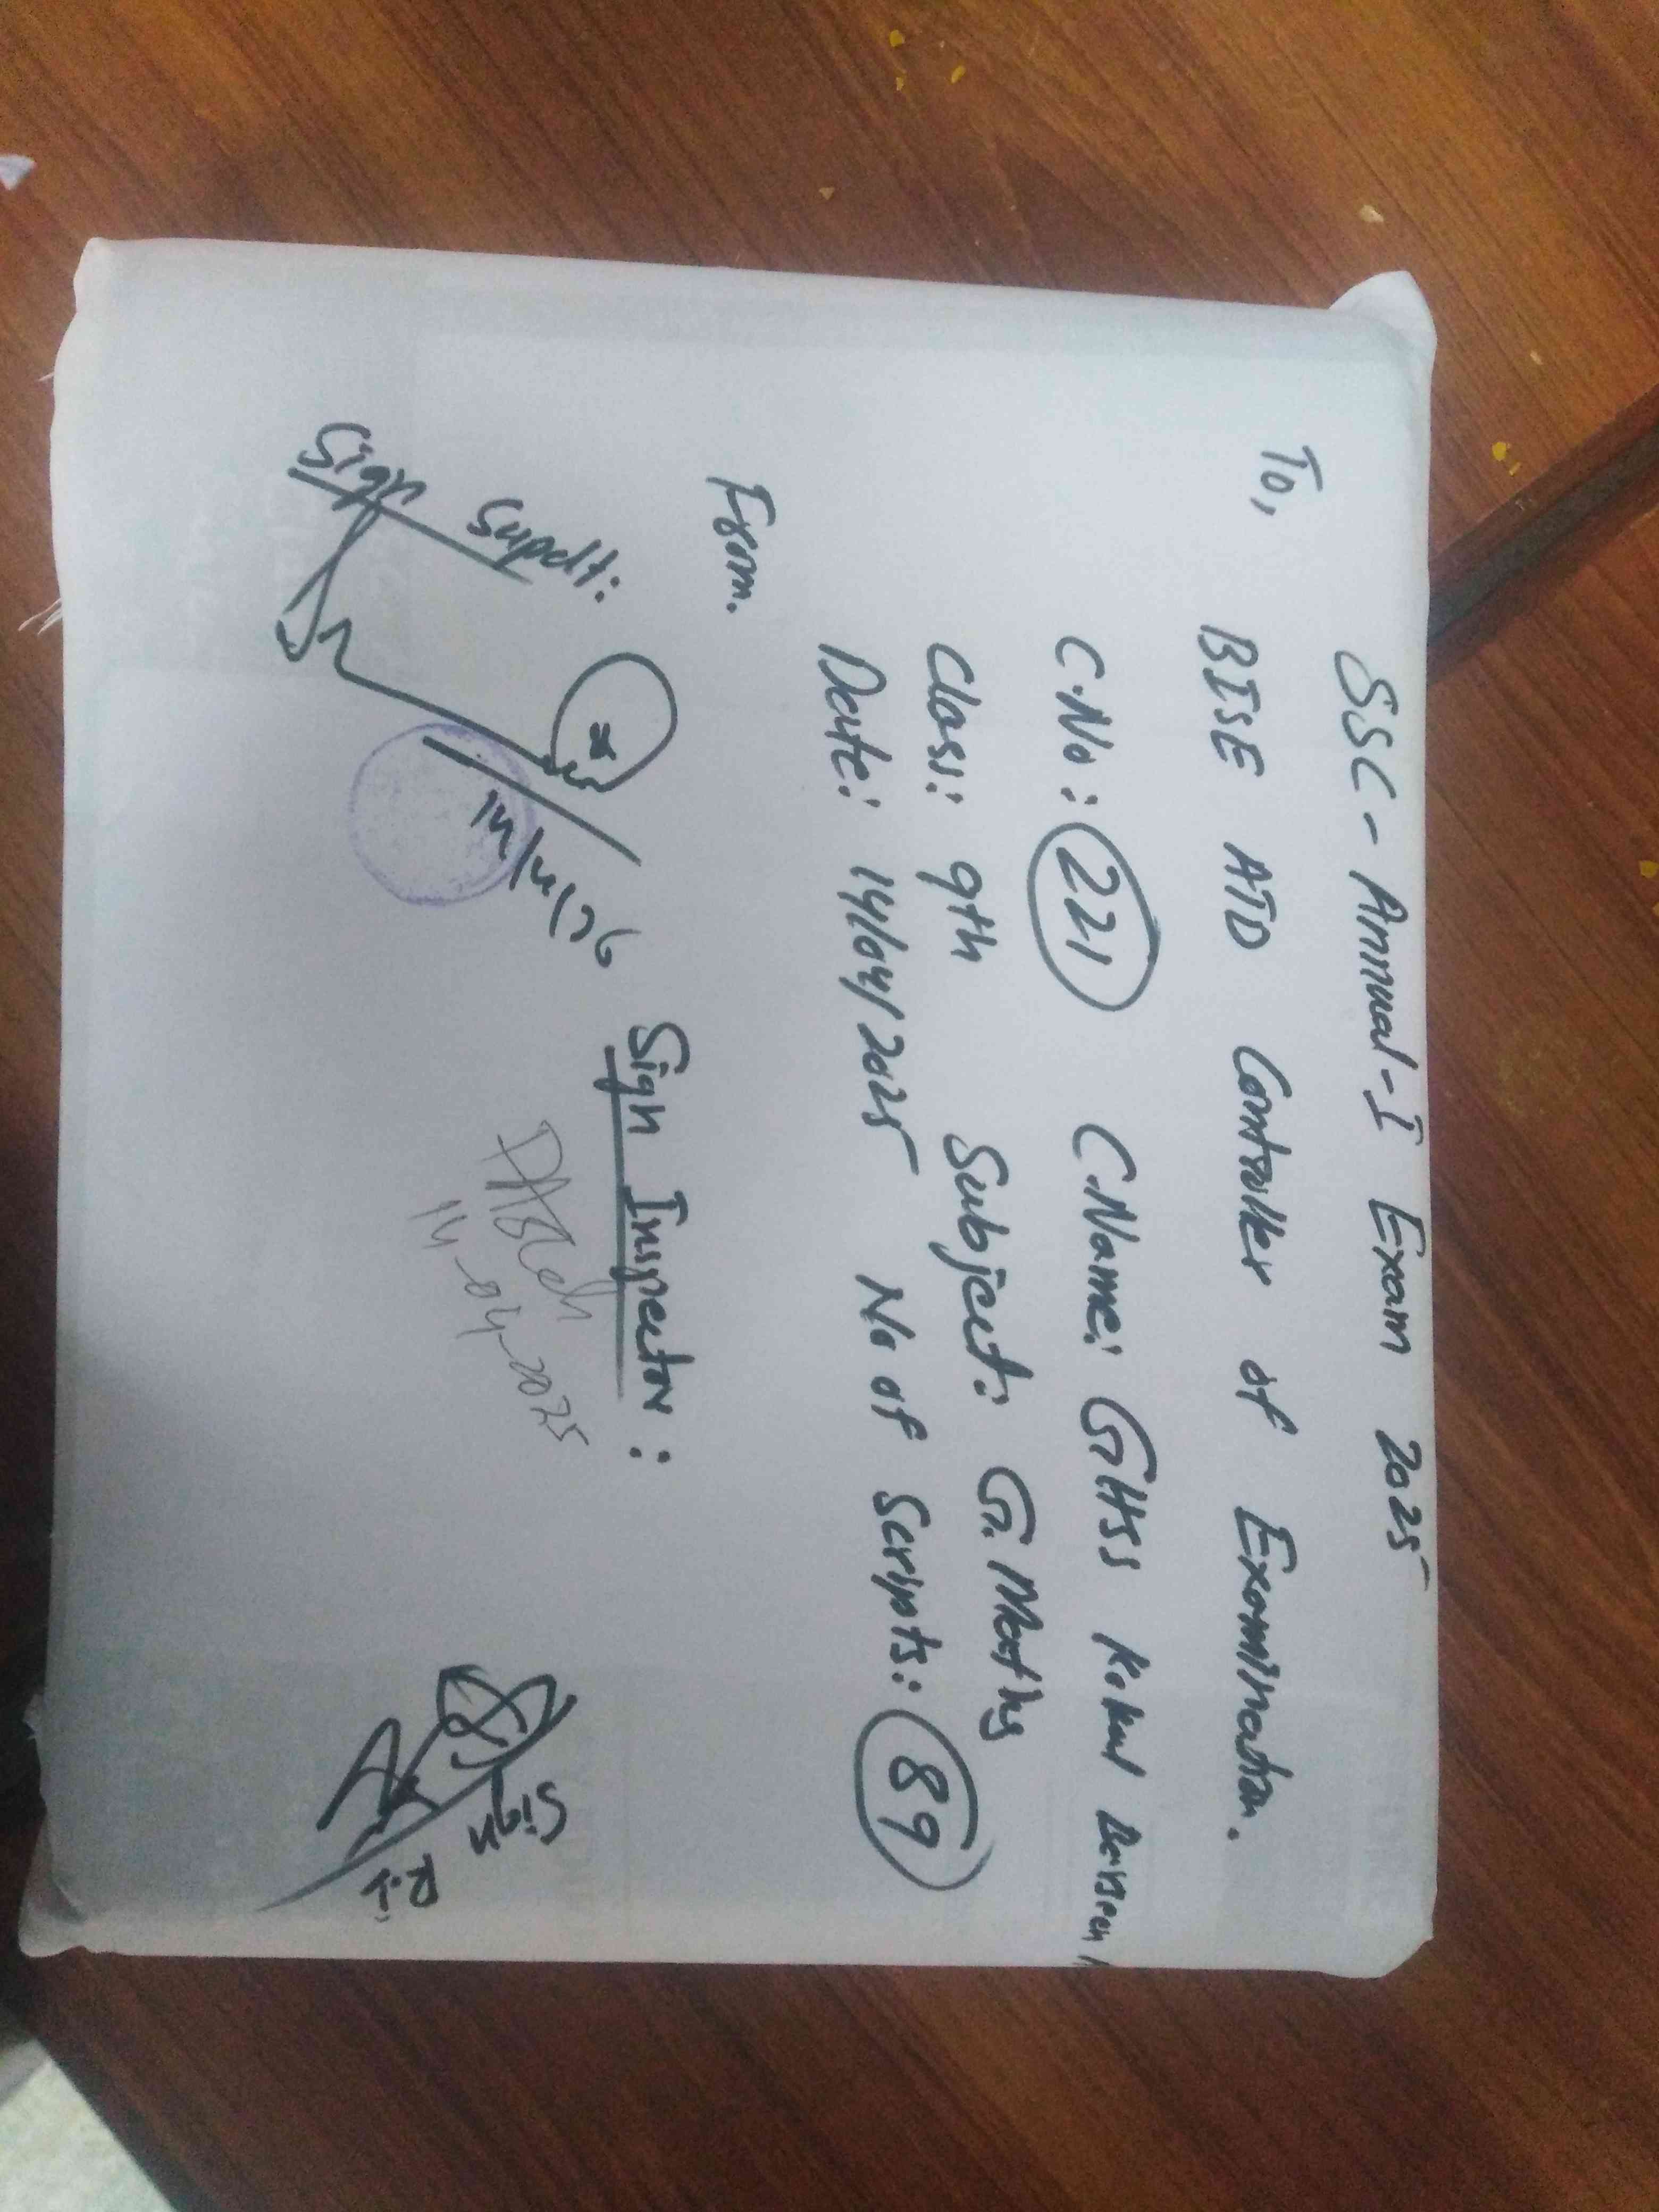 SSC - Annual-I Exam 2025
To,
BISE ATD Controller of Examination.
C.No: 221 C.Name: GHSS Kokal Barseen
Class: 9th Subject: G. Maths
Date: 14/04/2025 No of Scripts: 89
From.
Sign Supdtt:
Sign Inspector:
14-04-2025
Sign R.I